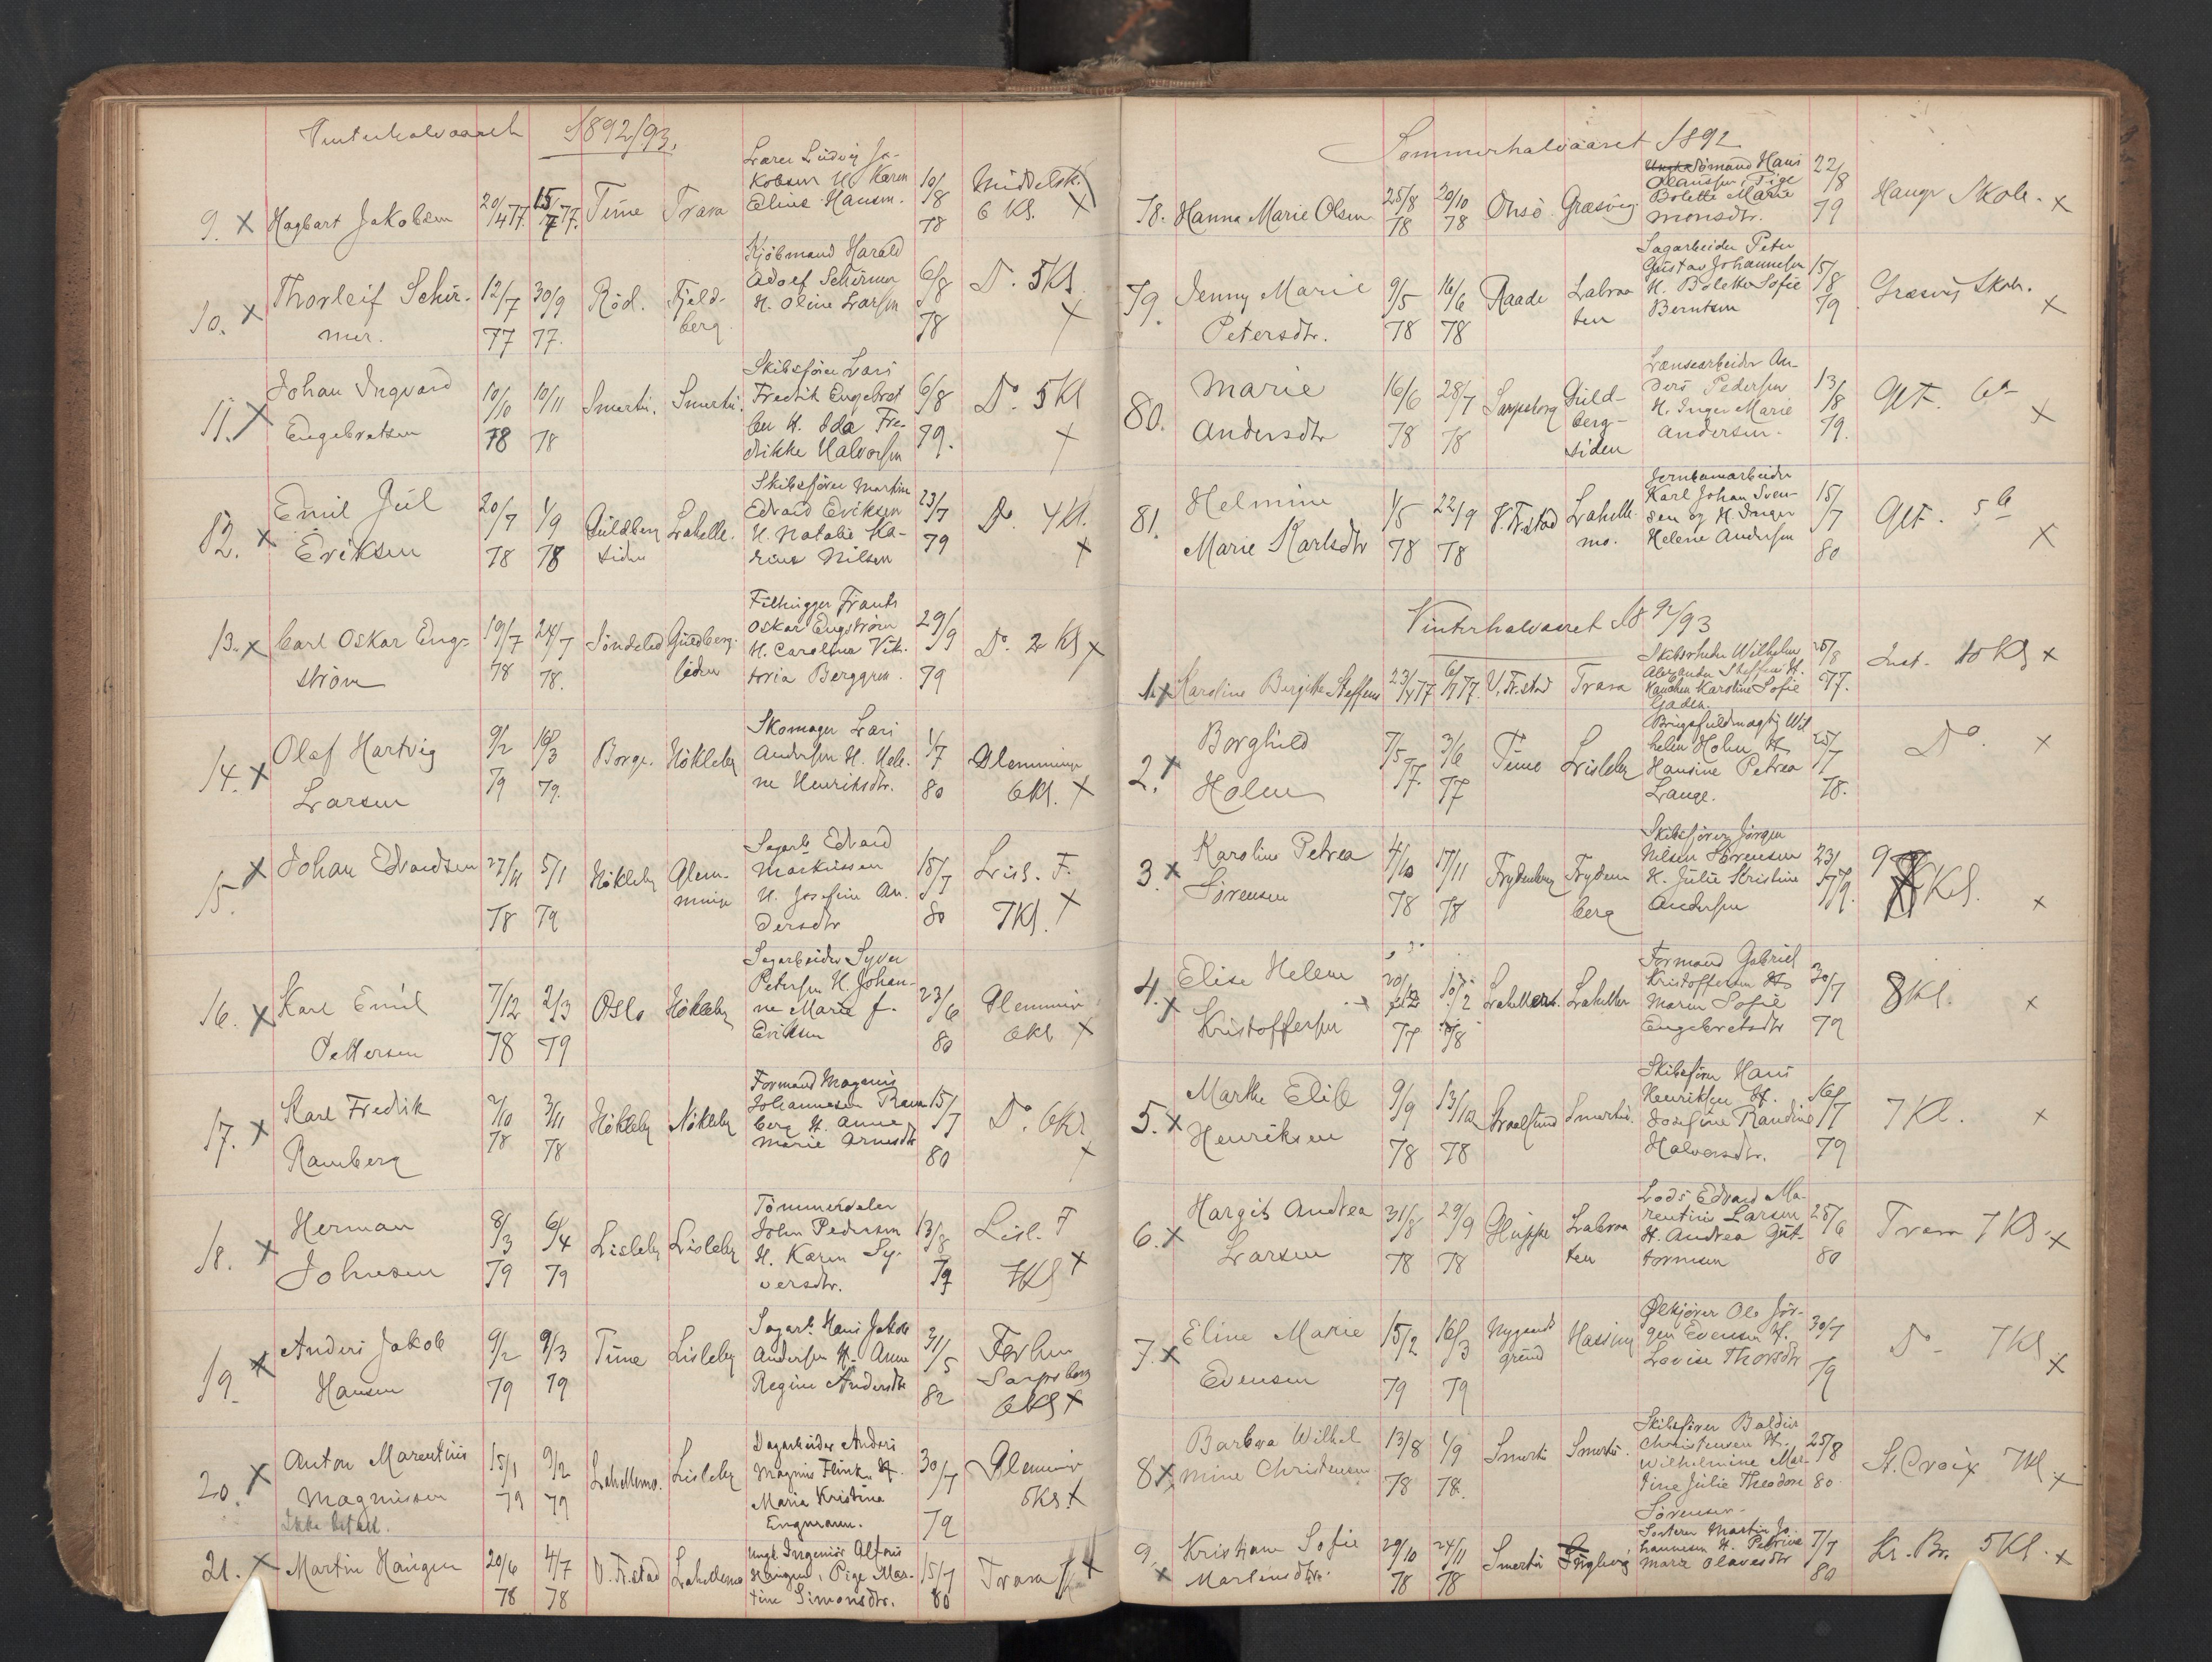 Vinterhalvaaret 1892/93.
9. x Hagbart Jakobsen 20/4 77. 15/7 77. Tune Trara Lærer Ludvig Ja-
kobsen H. Karen
Eline Hansen. 10/8 78 Middelsk. 6 Kl. x
10. x Thorleif Schir-
mer. 12/7 77 30/9 77. Röd. Fjeld-
berg Kjöbmand Harald
Adolf Schirmer
H. Oline Larsen 6/8 78 Do. 5 Kl x
11. x Johan Ingvard
Engebretsen 10/10 78 10/11 78 Smertu. Smertu. Skibsförer Lars
Fredrik Engebret
sen H. Ida Fre-
drikke Halvorsen 6/8 79. Do. 5 Kl x
12. x Emil Jul
Eriksen 20/7 78 1/9 78 Guldberg
siden Lahelle. Skibsförer Martin
Edvard Eriksen
H. Natalie Ka-
rine Nilsen 23/7 79 Do. 4 Kl. x
13. x Carl Oskar Eng-
ström 19/7 78 24/7 78. Söndeled Guldberg-
siden Filhugger Frants
Oskar Engström
H. Carolina Vik-
toria Berggren. 29/9 79 Do. 2 Kl x
14. x Olaf Hartvig
Larsen 9/2 79 16/3 79. Borge. Nökleby Skomager Lars
Andersen H. Hele-
ne Henriksdtr. 1/7 80 Glemminge
6 Kl. x
15. x Johan Edvardsen 27/11 78 5/1 79 Nökleby Glem-
minge Sagarb. Edvard
Markussen
H. Josefine An-
dersdtr 15/7 80 Lisl. F.
7 Kl. x
16. x Karl Emil
Pettersen 7/12 78 2/3 79 Oslo Nökleby Sagarbeider Syver
Petersen H. Johan-
ne Marie f.
Eriksen 23/6 80 Glemminge
6 Kl x
17. x Karl Fredrik
Ramberg 2/10 78 3/11 78 Nökleby Nökleby Formand Magnus
Johannesen Ram-
berg H. Anne
Marie Arnesdtr 15/7 80 Do. 6 Kl x
18. x Herman
Johnsen 8/3 79 6/4 79 Lisleby Lisleby Tömmerdeler
John Pedersen
H. Karen Sy-
versdtr. 13/8 79 Lisl. F
7 Kl x
19. x Anders Jakob
Hansen 9/2 79 9/3 79 Tune Lisleby Sagarb. Hans Jakob
Andersen H. Anne
Regine Andersdtr 31/5 82
Sarpsborg
6 Kl x
20. x Anton Marentius
Magnussen
Ikke betalt. 15/1 79 9/2 79 Lahellemo. Lisleby Dagarbeider Anders
Magnus Flink H.
Maria Kristina
Engmann. 30/7 79 Glemminge
5 Kl. x
21. x Martin Haugen 20/6 78 4/7 78 V. Fr.stad Lahellemo Ungk. Ingeniör Alfons
Haugen, Pige Mar-
tine Simonsdtr. 15/7 80 Trara x
Sommerhalvaaret 1892
78. Hanna Marie Olsen 25/8 78 20/10 78 Onsö Græsvig Sömand Hans
Olaussen, Pige
Bolette Marie
Monsdtr. 22/8 79 Hauge Skole. x
79. Jenny Marie
Petersdtr. 9/5 78 16/6 78 Raade Labraa
ten Sagarbeider Peter
Gustav Johannesen
H. Bolette Sofie
Berntsen 15/8 79 Græsvig Skole. x
80. Marie
Andersdtr 16/6 78 28/7 78 Sarpsborg Guld-
berg-
siden Lænsearbeider An-
ders Pedersen
H. Inger Marie
Andersen. 13/8 79. Glt. 6a x
81. Helmine
Marie Karlsdtr 1/5 78 22/9 78 V. Fr.stad Lahelle-
mo. Jernbanearbeider
Karl Johan Sven-
sen og H. Inger
Helene Andersen 15/7 80 Glt. 5b x
Vinterhalvaaret 1892/93
1. x Karoline Bergitte Steffens 23/4 77 6/7 77. V. Fr.stad Trara Skibsreder Wilhelm
Alexander Steffens H.
Karoline Sofie
Gaden. 25/8 77. Inst. 10 Kl x
2. x Borghild
Holm 7/5 77. 3/6 77 Tune Lisleby Brugsfuldmægtig Wil
helm Holm H.
Hansine Petrea
Lange. 25/7 78. Do. x
3. x Karoline Petrea
Sörensen 4/10 78 17/11 78 Frydenberg Fryden
berg Skibsförer Jörgen
Nilsen Sörensen
H. Julie Kristine
Andersen 23/7 79. 9 Kl. x
4. x Elise Helene
Kristoffersen 20/12 77 10/2 78 Lahellen. Lahellen Formand Gabriel
Kristoffersen H.
Maren Sofie
Engebretsdtr 30/7 79 8 Kl. x
5. x Marthe Elise
Henriksen 9/9 78 13/10 78 Smertu. Skibsförer Hans
Henriksen H.
Josefine Randine
Halvorsdtr. 16/7 79 7 Kl. x
6. x Hargit Andrea
Larsen 31/8 78 29/9 78 Gluppe Labraa
ten Lods Edvard Ma-
rentius Larsen
H. Andrea Gut-
tormsen 25/6 80 Trara 7 Kl. x
7. x Eline Marie
Evensen 15/2 79 16/3 79 Nygaards
grund Hassing Ölkjörer Ole Jör-
gen Evensen H.
Lovise Thorsdtr 30/7 79 Do - 7 Kl. x
8. x Barbra Wilhel
mine Christensen 13/8 78 1/9 78. Smertu Smertu. Skibsförer Baldus
Christensen H.
Wilhelmine Mar-
tine Julie Theodore
Sörensen. 25/8 80. St. Croix 7 Kl. x
9. x Kristiane Sofie
Martinsdtr. 29/10 78 24/11 78 Smertu Sorterer Martin Jo-
hannesen H. Petrine
Mara Olavesdtr 7/7 80 Kr. Br. 5 Kl. x